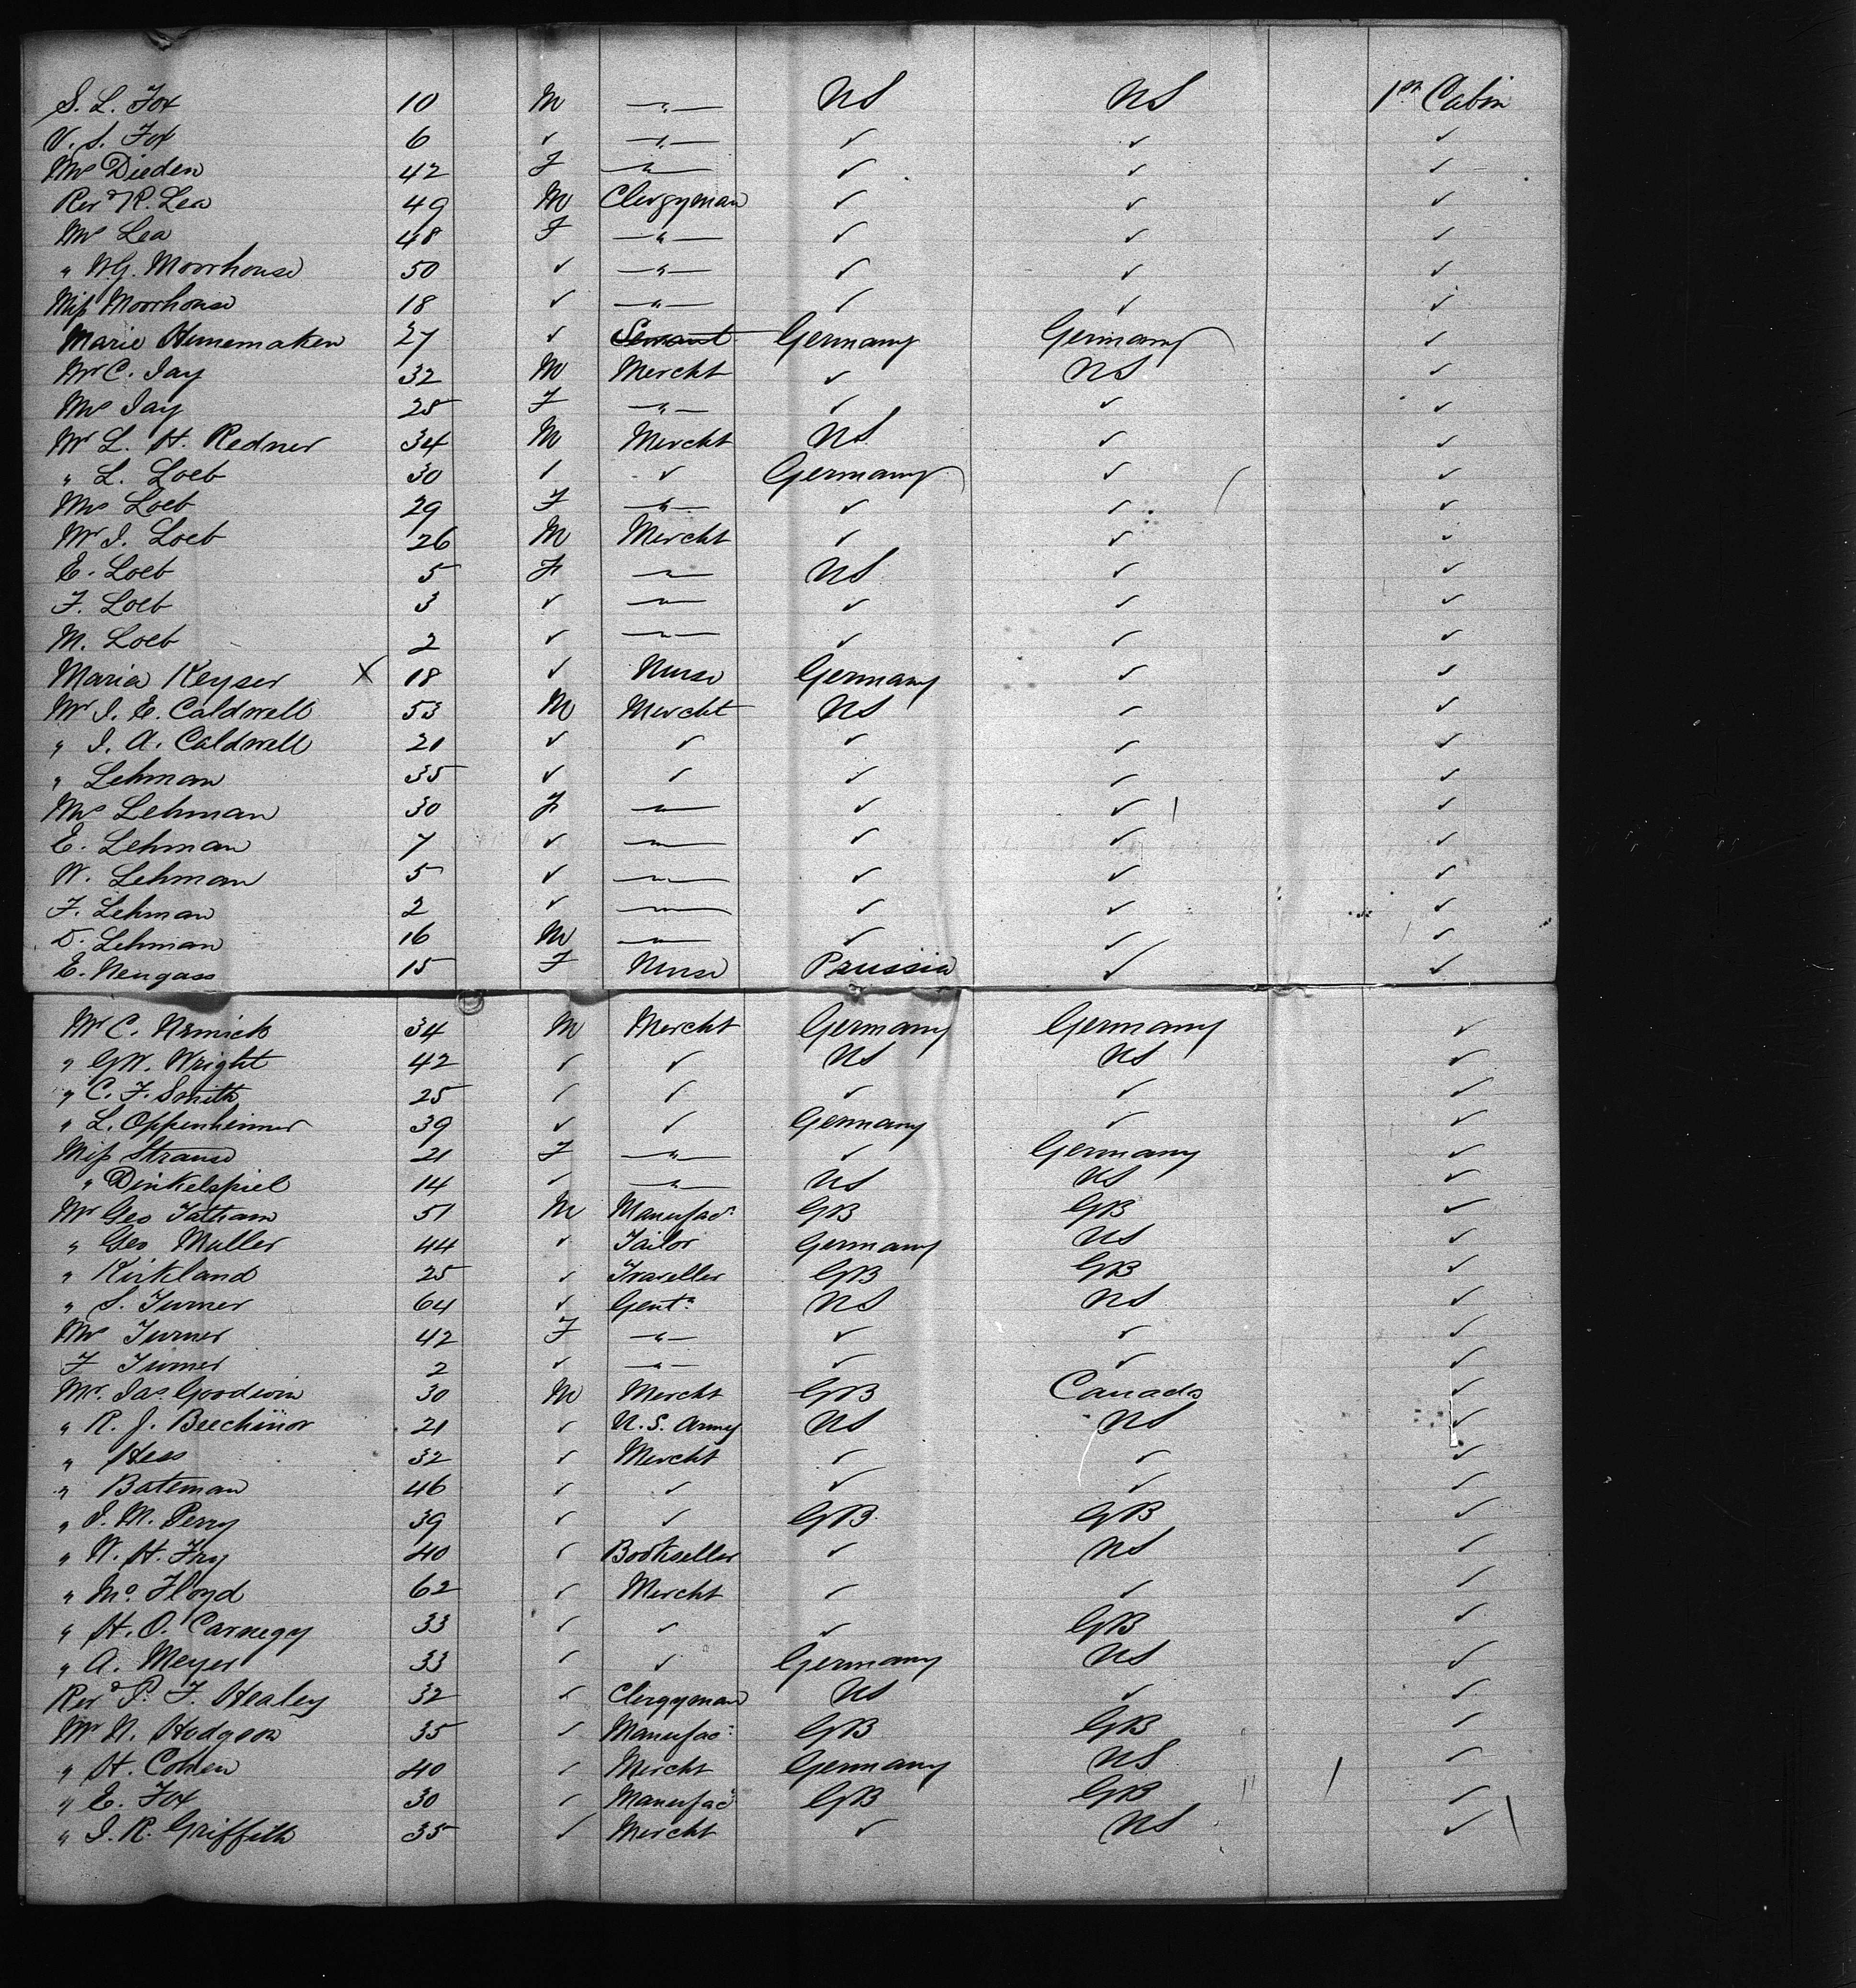 S. L. Fox 10 M —"— US US 1st Cabin
V. S. Fox 6 ✓ —"— ✓ ✓ ✓
Mrs Dieden 42 F —"— ✓ ✓ ✓
Revd R. Lea 49 M Clergyman ✓ ✓ ✓
Mrs Lea 48 F —"— ✓ ✓ ✓
" W.G. Moorhouse 50 ✓ —"— ✓ ✓ ✓
Miss Moorhouse 18 ✓ —"— ✓ ✓ ✓
Marie Hunemaken 27 ✓ Servant Germany Germany ✓
Mr C. Jay 32 M Mercht ✓ US ✓
Mrs Jay 28 F —"— ✓ ✓ ✓
Mr L. H. Redner 34 M Mercht US ✓ ✓
" L. Loeb 30 ✓ ✓ Germany ✓ ✓
Mrs Loeb 29 F —"— ✓ ✓ ✓
Mr I. Loeb 26 M Mercht ✓ ✓ ✓
E. Loeb 5 F —"— US ✓ ✓
F. Loeb 3 ✓ —"— ✓ ✓ ✓
M. Loeb 2 ✓ —"— ✓ ✓ ✓
Maria Keyser X 18 ✓ Nurse Germany ✓ ✓
Mr J. E. Caldwell 53 M Mercht US ✓ ✓
" J. A. Caldwell 20 ✓ ✓ ✓ ✓ ✓
" Lehman 35 ✓ ✓ ✓ ✓ ✓
Mrs Lehman 30 F —"— ✓ ✓ ✓
E. Lehman 7 ✓ —"— ✓ ✓ ✓
W. Lehman 5 ✓ —"— ✓ ✓ ✓
F. Lehman 2 ✓ —"— ✓ ✓ ✓
D. Lehman 16 M —"— ✓ ✓ ✓
E. Neugass 15 F Nurse Prussia ✓ ✓
Mr C. 34 M Mercht Germany Germany ✓
" GW. Wright 42 ✓ ✓ US US ✓
" C. F. Smith 25 ✓ ✓ ✓ ✓ ✓
" L. Oppenheimer 39 ✓ ✓ Germany ✓ ✓
Miss Strause 21 F —"— ✓ Germany ✓
" Dinkelspiel 14 ✓ —"— US US ✓
Mr Geo Tatham 51 M Manufacr GB GB ✓
" Geo Muller 44 ✓ Tailor Germany US ✓
" Kirkland 25 ✓ Traveller GB GB ✓
" S. Turner 64 ✓ Gentn US US ✓
Mrs Turner 42 F —"— ✓ ✓ ✓
F Turner 2 ✓ —"— ✓ ✓ ✓
Mr. Jas Goodwin 30 M Mercht GB Canada ✓
" R. J. Beechinor 21 ✓ U.S. Army US US ✓
" Hess 32 ✓ Mercht ✓ ✓ ✓
" Bateman 46 ✓ ✓ ✓ ✓ ✓
" J. M. Perry 39 ✓ ✓ GB GB ✓
" W. H. Fry 40 ✓ Bookseller ✓ US ✓
" Mc Floyd 62 ✓ Mercht ✓ ✓ ✓
" H. O. Carnegy 33 ✓ ✓ ✓ GB ✓
" A. Meyer 33 ✓ ✓ Germany US ✓
Revd P. F. Healey 32 ✓ Clergyman US ✓ ✓
Mr N. Hodgson 35 ✓ Manufacr GB GB ✓
" H. Cohen 40 ✓ Mercht Germany US ✓
" E. Fox 30 ✓ Manufacr GB GB ✓
" J. R. Griffith 35 ✓ Mercht ✓ US ✓